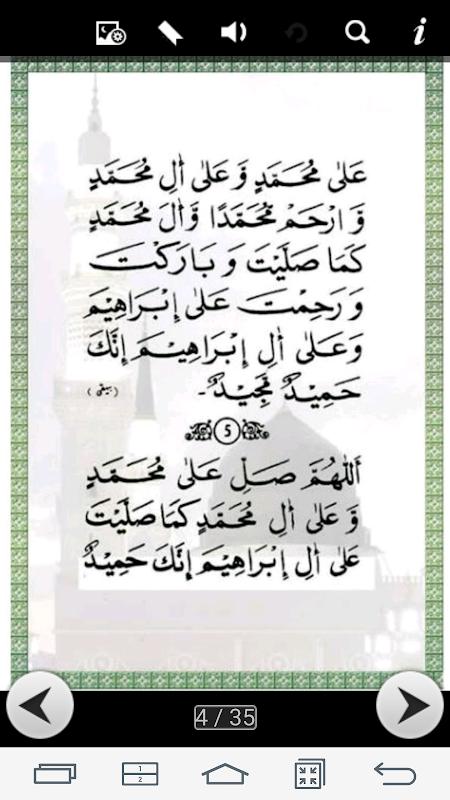 عَلٰى مُحَمَّدٍ وَّ عَلٰى اٰلِ مُحَمَّدٍ
وَّ ارْحَمْ مُحَمَّدًا وَّاٰلَ مُحَمَّدٍ
كَمَا صَلَّيْتَ وَ بَارَكْتَ
وَ رَحِمْتَ عَلٰى اِبْرَاهِيْمَ
وَعَلٰى اٰلِ اِبْرَاهِيْمَ اِنَّكَ
حَمِيْدٌ مَّجِيْدٌ۔ (بیہقی)
5
اَللّٰهُمَّ صَلِّ عَلٰى مُحَمَّدٍ
وَّ عَلٰى اٰلِ مُحَمَّدٍ كَمَا صَلَّيْتَ
عَلٰى اٰلِ اِبْرَاهِيْمَ اِنَّكَ حَمِيْدٌ
4 / 35
1
2